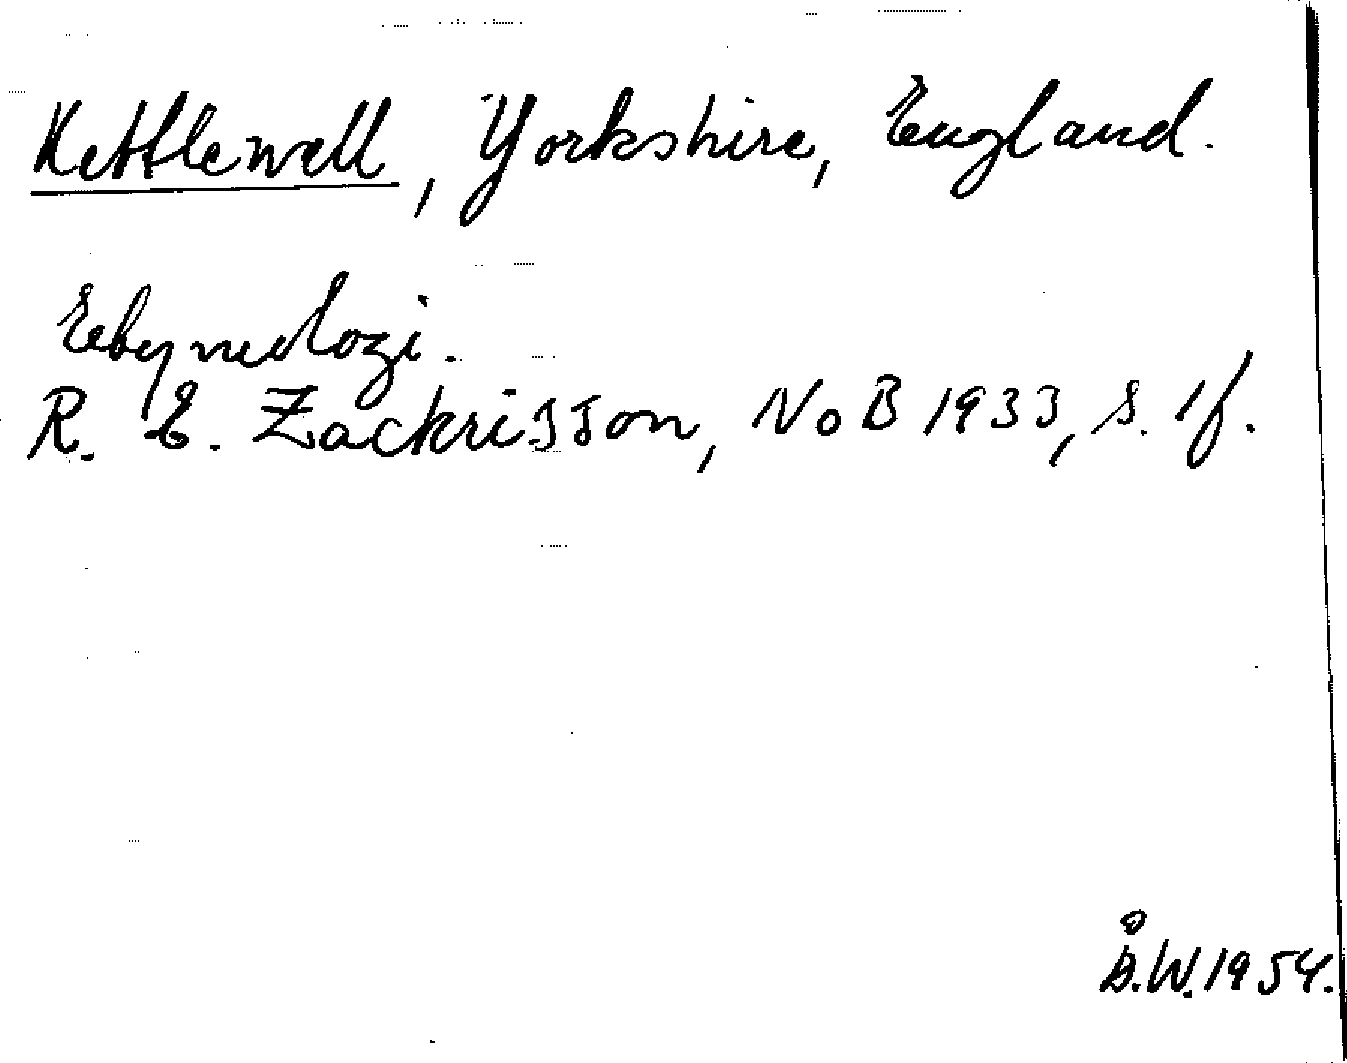 Kettlewell, Yorkshire, England.
Etymologi.
R. E. Zackrisson, NoB 1933, s. 1f.
Å.W. 1954.